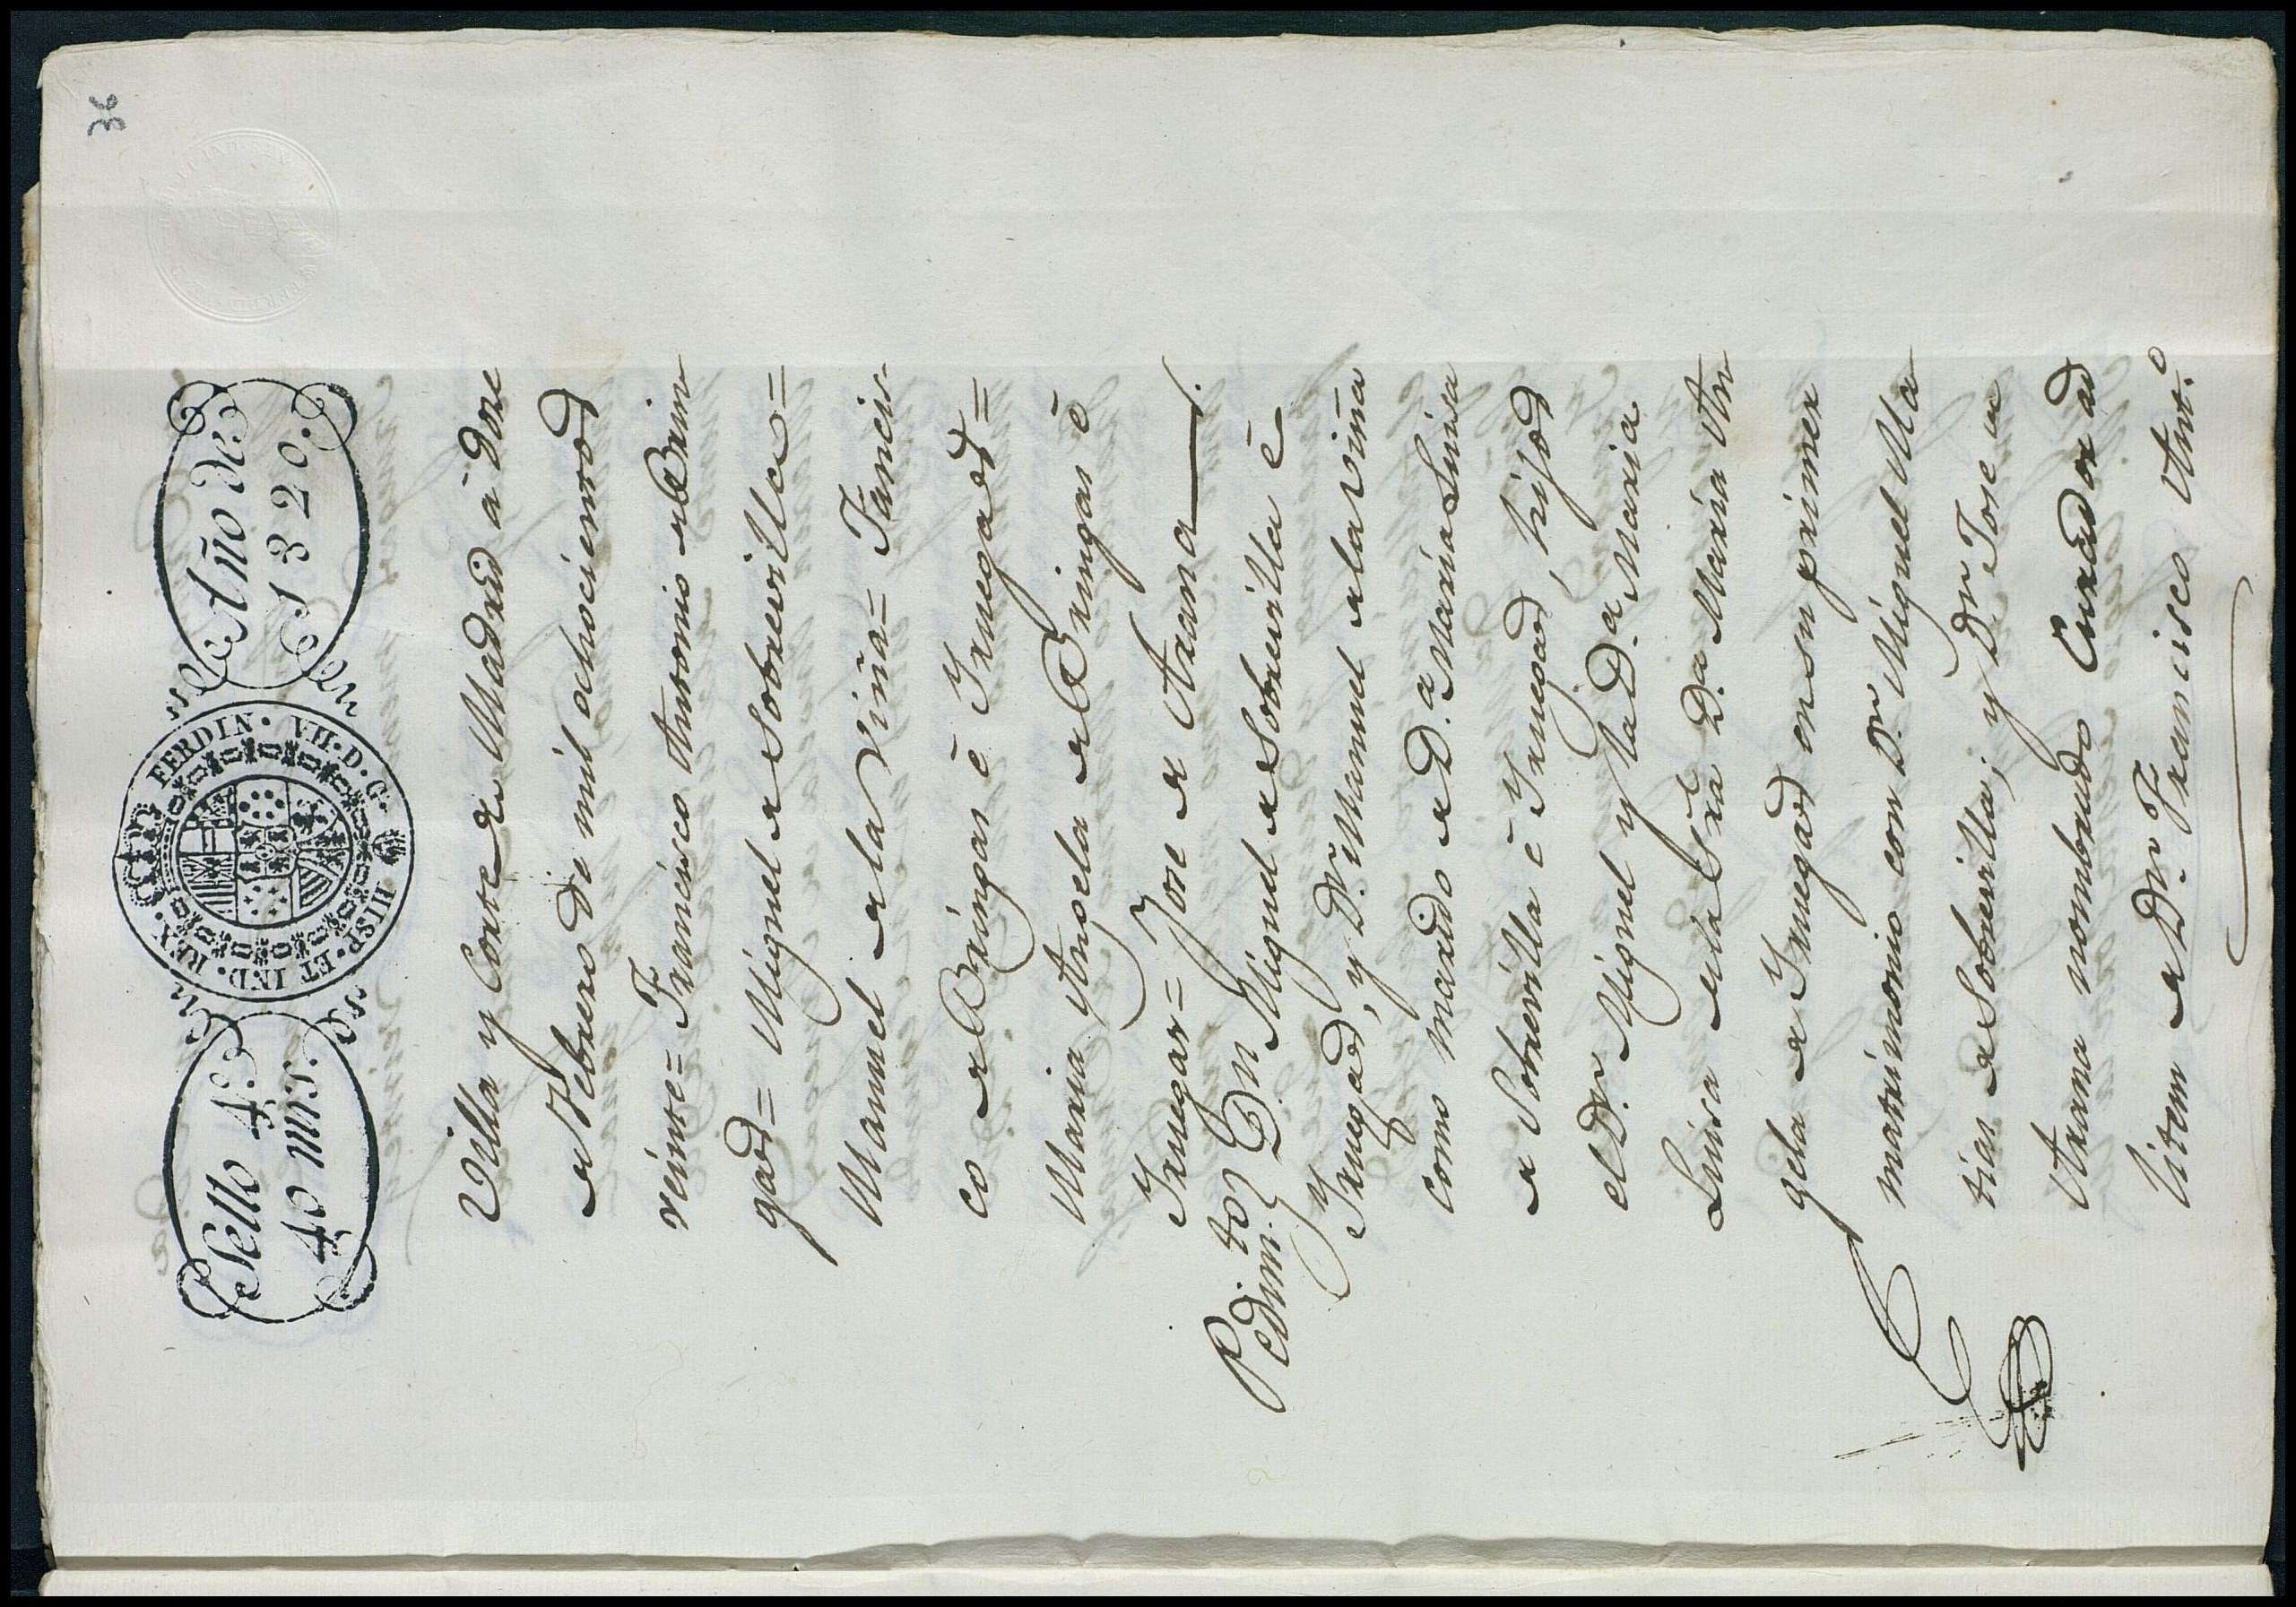 36
Sello 4º
40 mrs.
FERDIN. VII. D. G. HISP. ET IND. REX.
Año de
1820.
Villa y Corte de Madrid à doze
de Febrero de mil ochocientos
veinte= Francisco Antonio de Brin
gas= Miguel de Sobrevilla=
Manuel de la Viña= Francis-
co de Bringas é Yruegas=
Maria Angela de Bringas é
Yruegas= Jose de Arana
Pedim.to Dn Miguel de Sobrevilla é
Yruegas, y Dn. Manuel de la Viña
como marido de D.a Maria Luisa
de Sobrevilla é Yruegas, hijos
el Dn. Miguel y la D.a Maria
Luisa de la Sra D.a Maria An
gela de Yruegas en su primer
matrimonio con Dn Miguel Ma
tias de Sobrevilla; y Dn Jose de
Arana nombrado Curador ad
litem de Dn. Francisco Ant.o